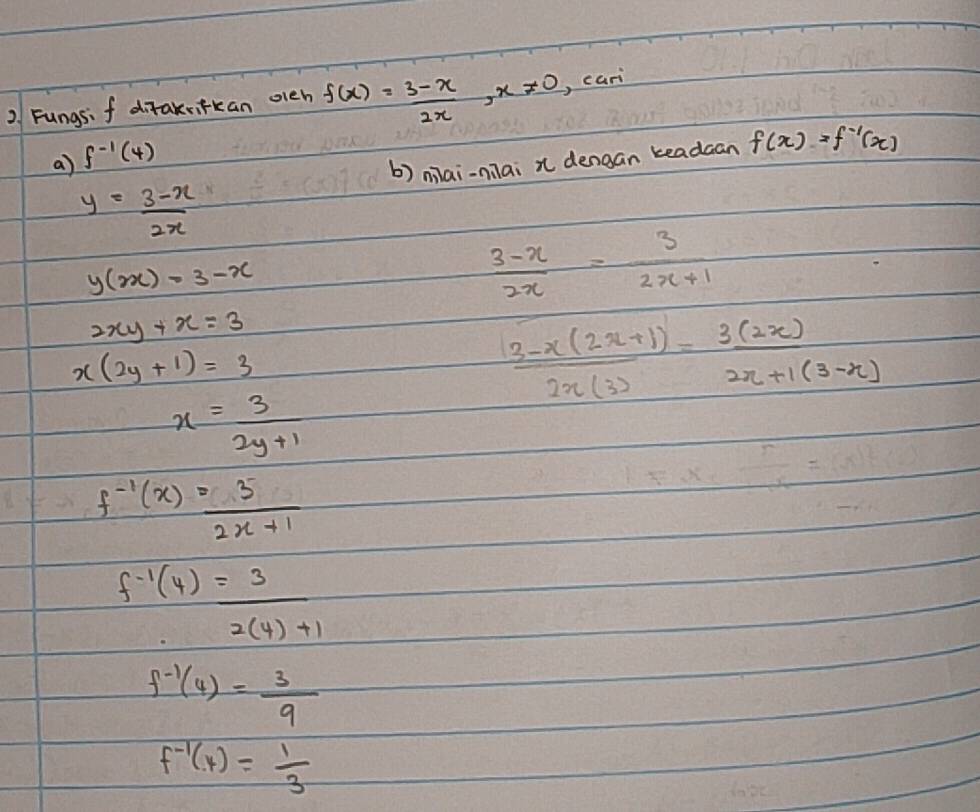 2. Fungsi f ditakrifkan oleh f(x) = 3-x/2x, x ≠ 0, cari
a) f⁻¹(4)
y = 3-x/2x
y(2x) = 3-x
2xy + x = 3
x(2y+1) = 3
x = 3/2y+1
f⁻¹(x) = 3/2x+1
f⁻¹(4) = 3/2(4)+1
f⁻¹(4) = 3/9
f⁻¹(4) = 1/3
b) nilai-nilai x dengan keadaan f(x) = f⁻¹(x)
3-x/2x = 3/2x+1
3-x(2x+1)/2x(3) = 3(2x)/2x+1(3-x)